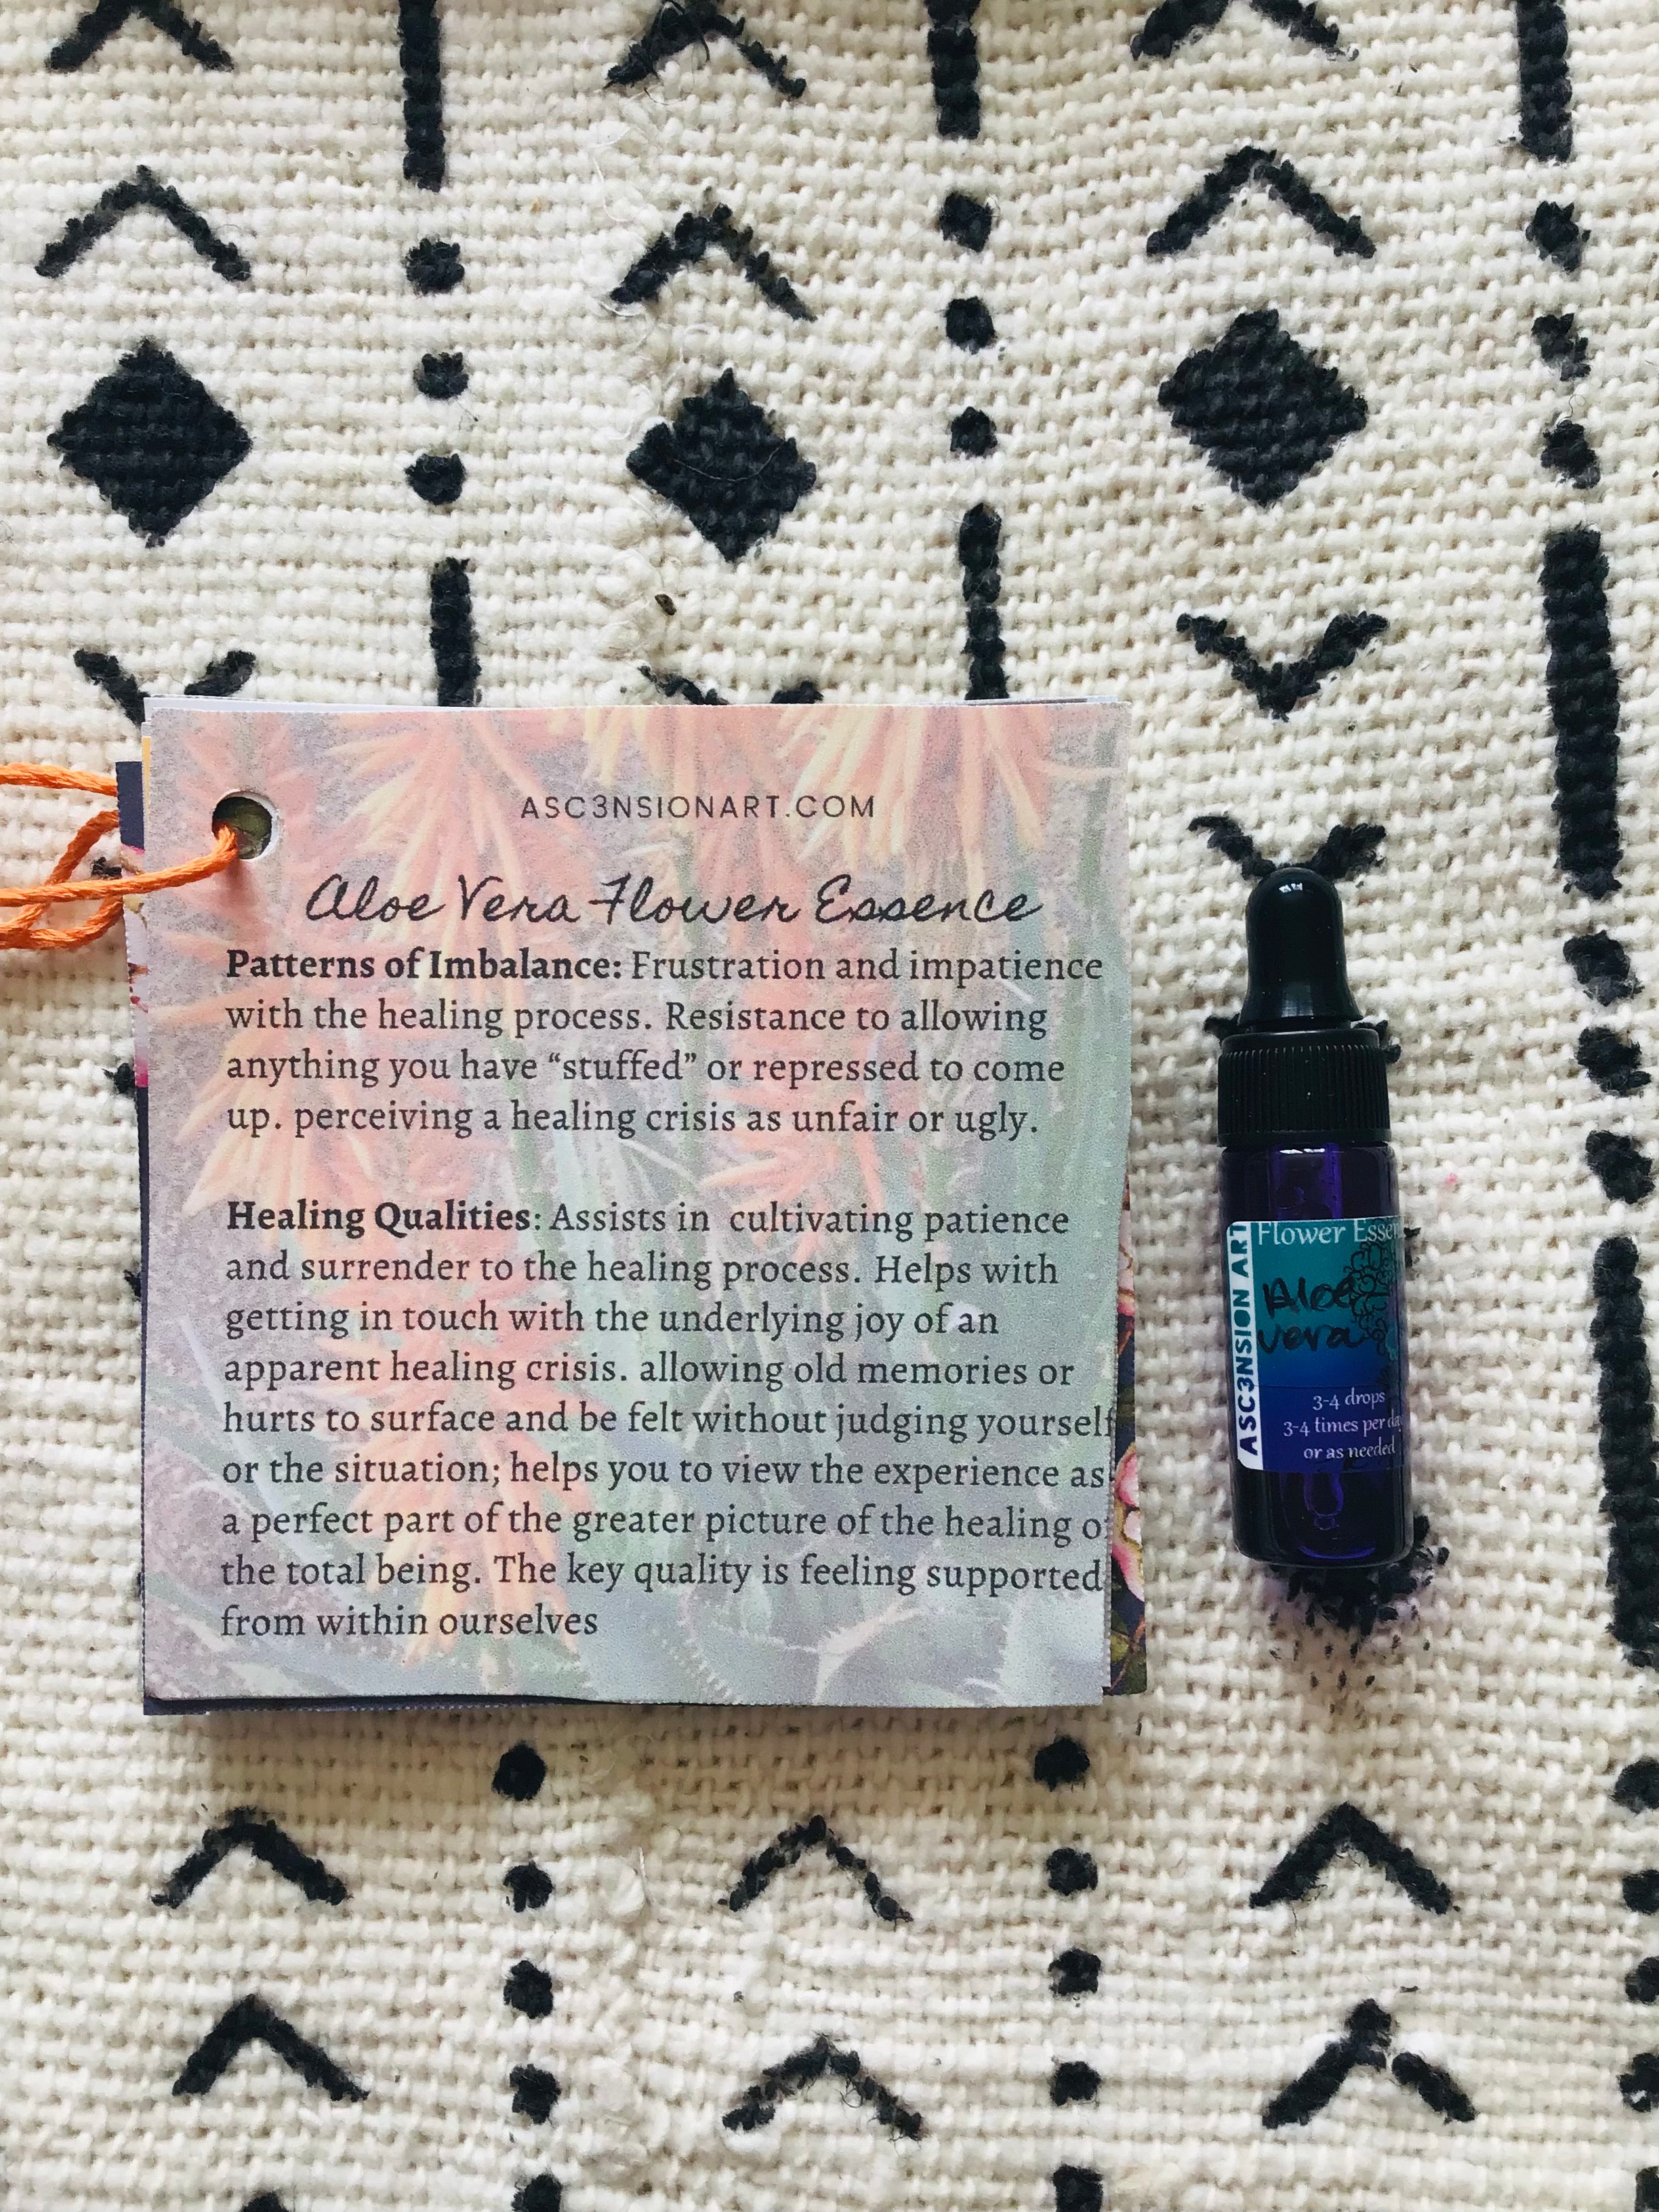 ASC3NSIONART.COM
Aloe Vera Flower Essence
Patterns of Imbalance: Frustration and impatience
with the healing process. Resistance to allowing
anything you have “stuffed” or repressed to come
up. perceiving a healing crisis as unfair or ugly.
Healing Qualities: Assists in cultivating patience
and surrender to the healing process. Helps with
getting in touch with the underlying joy of an
apparent healing crisis. allowing old memories or
hurts to surface and be felt without judging yourself
or the situation; helps you to view the experience as
a perfect part of the greater picture of the healing of
the total being. The key quality is feeling supported
from within ourselves
ASC3NSION ART
Flower
Aloe
vera
3-4 drops
3-4 times per
or as needed